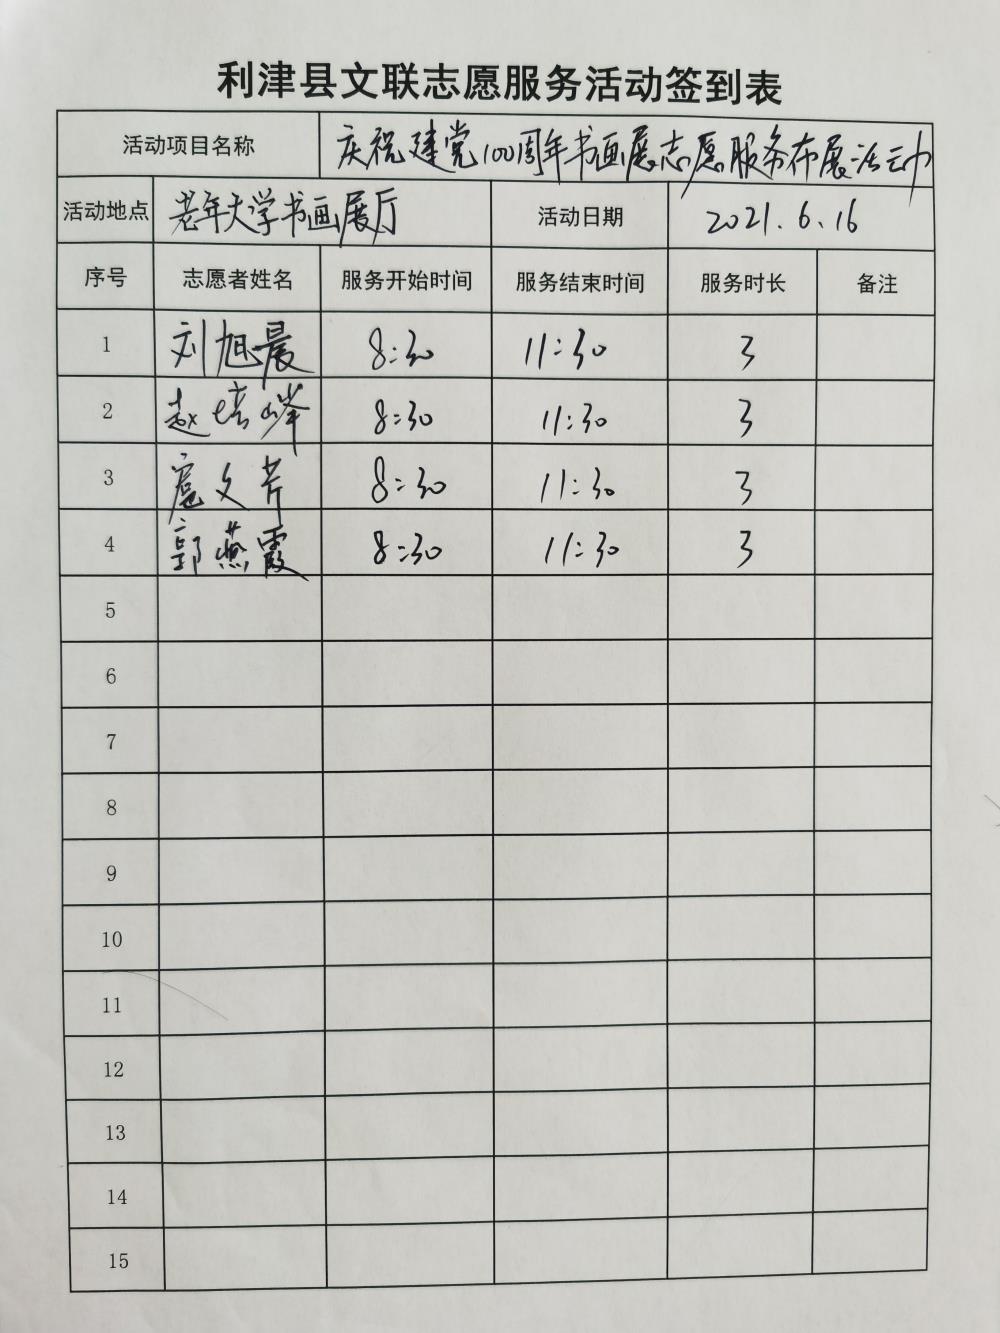 利津县文联志愿服务活动签到表
活动项目名称 庆祝建党100周年书画展志愿服务布展活动
活动地点 老年大学书画展厅 活动日期 2021.6.16
序号 志愿者姓名 服务开始时间 服务结束时间 服务时长 备注
1 刘旭晨 8:30 11:30 3
2 赵培峰 8:30 11:30 3
3 扈文芹 8:30 11:30 3
4 郭燕霞 8:30 11:30 3
5
6
7
8
9
10
11
12
13
14
15